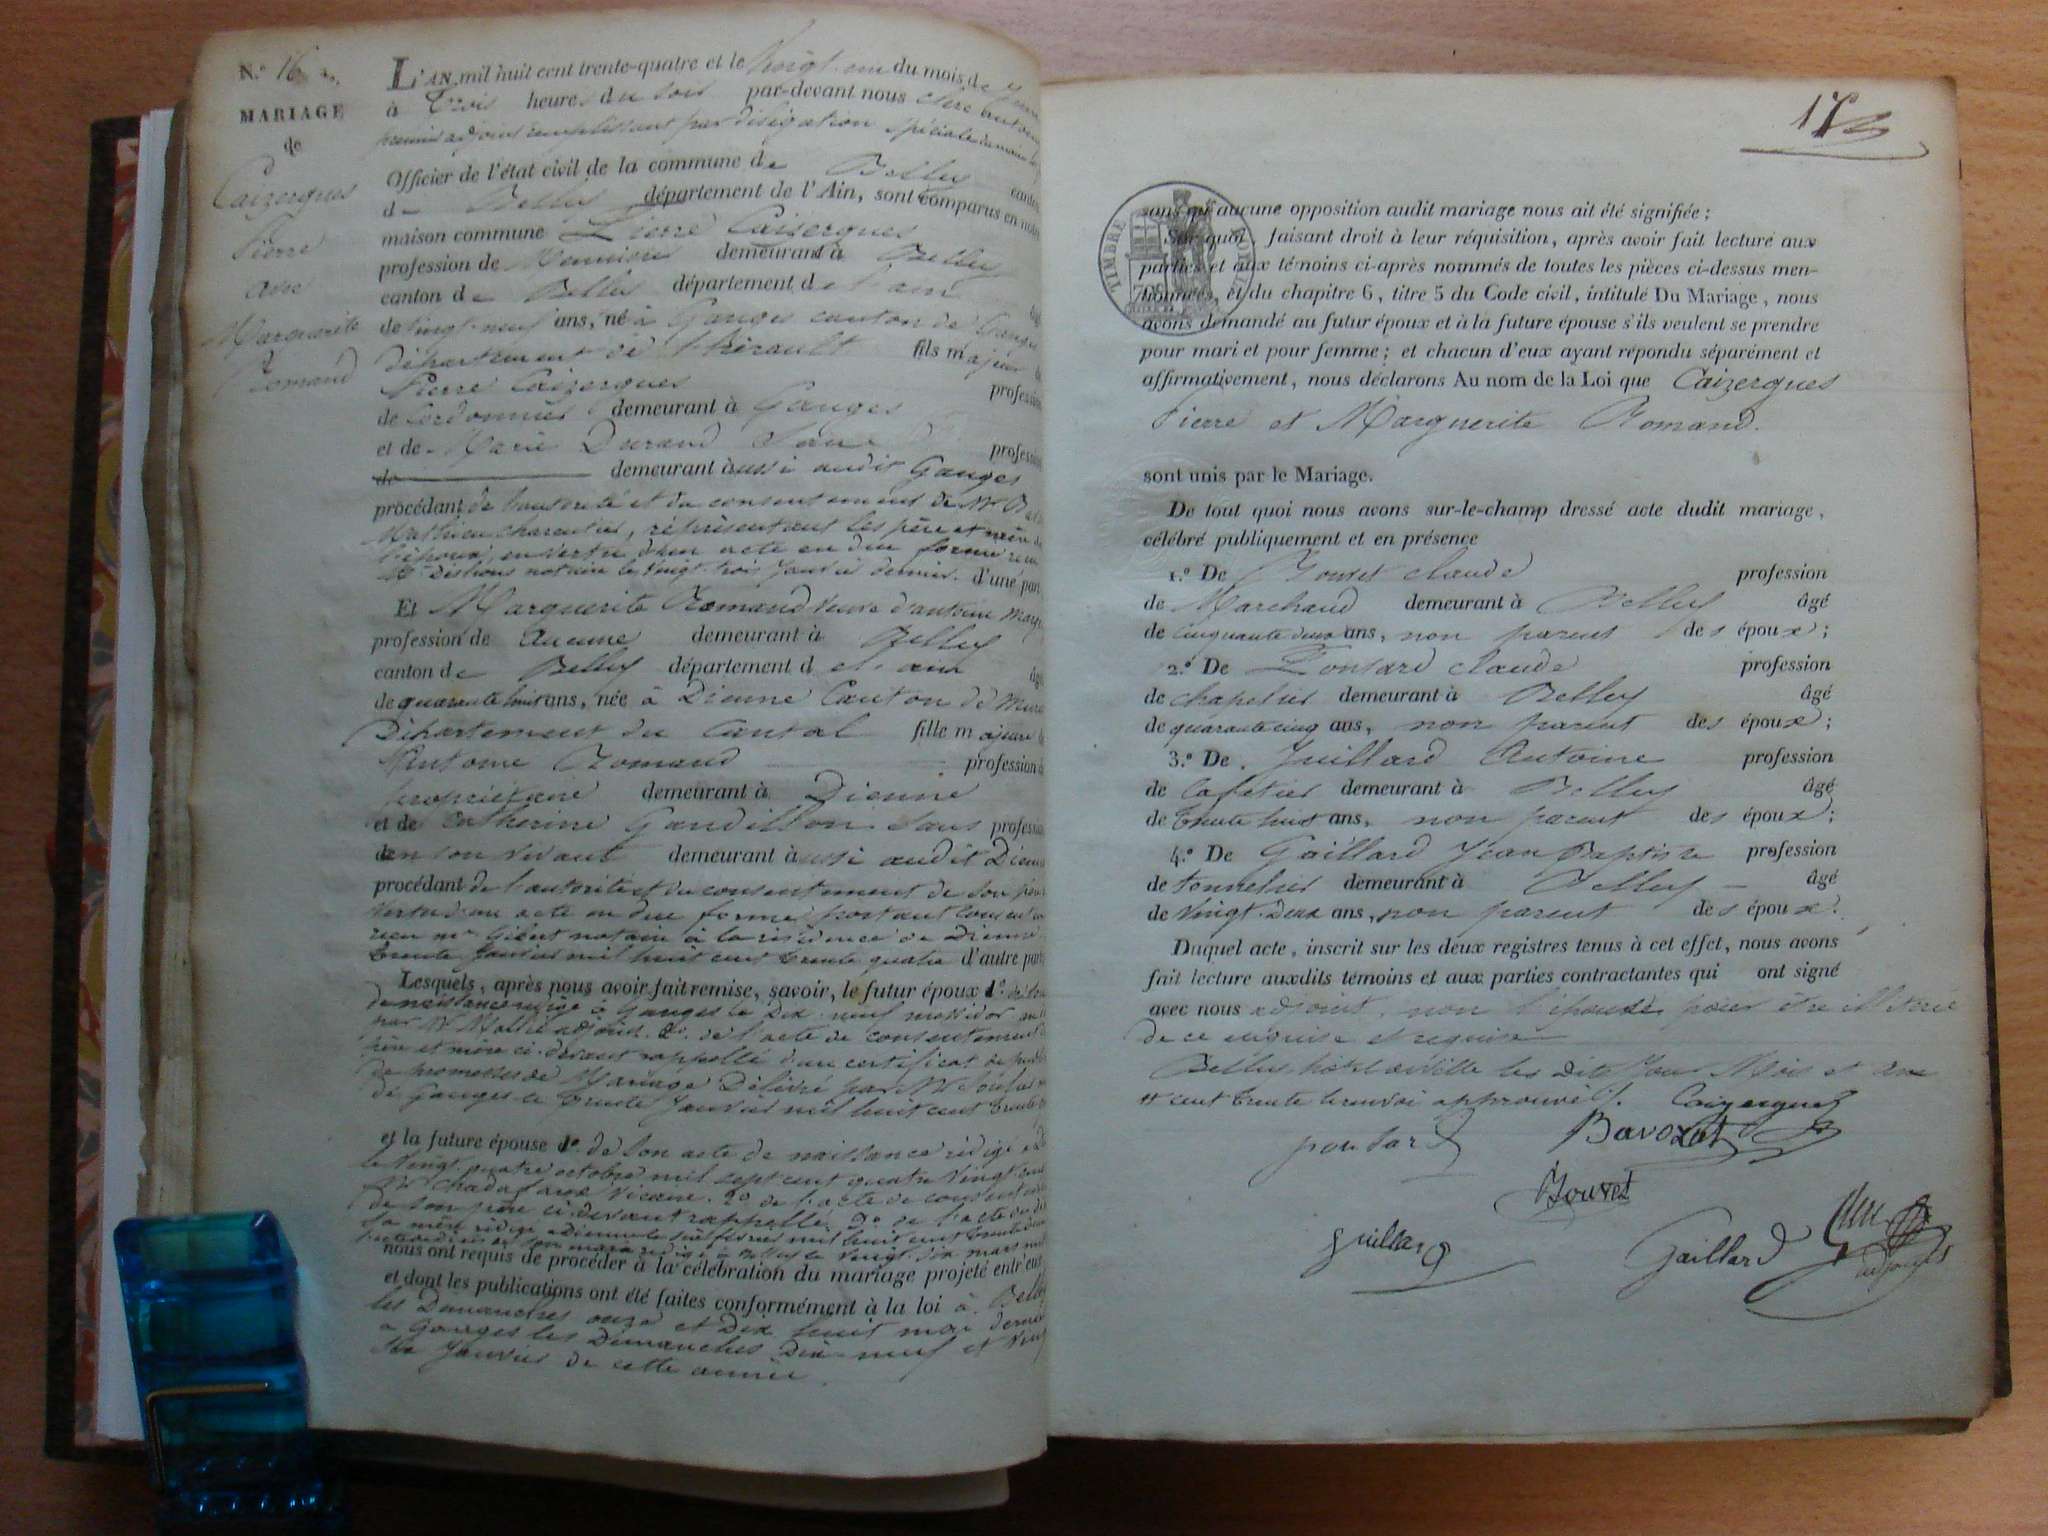 N.° 16
MARIAGE
de
Caizergues
Pierre
avec
Marguerite
Romand
L'AN mil huit cent trente-quatre et le vingt-un du mois de
à Trois heures du soir par-devant nous Clerc Antoine
premier adjoint remplissant par délégation spéciale du maire
Officier de l'état civil de la commune de Belley canton
de Belley département de l'Ain, sont comparus en notre
maison commune Pierre Caizergues
profession de Menuisier demeurant à Belley
canton de Belley département de l'ain âgé
de vingt-neuf ans, né à Ganges canton de Ganges
département de l'hérault fils majeur de
Pierre Caizergues profession
de Cordonnier demeurant à Ganges
et de Marie Durand Sans profession
de demeurant aussi audit Ganges
procédant de l'autorité et du consentement de Mr
Mathieu charcutier, représentant les père et mère de
l'époux, en vertu d'un acte en due forme reçu
notaire le vingt-trois Janvier dernier. d'une part
Et Marguerite Romand veuve d'antoine
profession de Aucune demeurant à Belley
canton de Belley département de l'ain âgée
de quarante huit ans, née à Dienne Canton de Murat
Département du Cantal fille majeure de
Antoine Romand profession de
propriétaire demeurant à Dienne
et de Catherine Gandillon Sans profession
en son vivant demeurant aussi audit Dienne
procédant de l'autorité et du consentement de son père
vertu d'un acte en due forme portant consentement
reçu mr notaire à la résidence de Dienne
trente Janvier mil huit cent trente quatre d'autre part
Lesquels, après nous avoir fait remise, savoir, le futur époux 1°
de naissance rédigé à Ganges le Dix-neuf messidor an
par Mr adjoint. 2°. de l'acte de consentement
père et mère ci-devant rappellé d'un certificat de
de promesses de Mariage Délivré par Mr
de Ganges le trente Janvier mil huit cent trente
et la future épouse 1°. de son acte de naissance rédigé
le vingt-quatre octobre mil sept cent quatre vingt
Mr vicaire. 2° de l'acte de consentement
de son père ci-devant rappellé. 3° de l'acte de décès
sa mère rédigé à Dienne le février mil huit cent
de son mari rédigé à Belley le vingt-six mars mil
nous ont requis de procéder à la célébration du mariage projeté entr'eux
et dont les publications ont été faites conformément à la loi à Belley
les Dimanches onze et Dix huit mai dernier
à Ganges les Dimanches Dix-neuf et vingt
six Janvier de cette année.
17
TIMBRE ROYAL
sans qu'aucune opposition audit mariage nous ait été signifiée;
Sur quoi, faisant droit à leur réquisition, après avoir fait lecture aux
parties et aux témoins ci-après nommés de toutes les pièces ci-dessus men-
tionnées, et du chapitre 6, titre 5 du Code civil, intitulé Du Mariage, nous
avons demandé au futur époux et à la future épouse s'ils veulent se prendre
pour mari et pour femme; et chacun d'eux ayant répondu séparément et
affirmativement, nous déclarons Au nom de la Loi que Caizergues
Pierre et Marguerite Romand.
sont unis par le Mariage.
De tout quoi nous avons sur-le-champ dressé acte dudit mariage,
célébré publiquement et en présence
1.° De Bouvet Claude profession
de Marchand demeurant à Belley âgé
de cinquante deux ans, non parent des époux;
2.° De Ponsard claude profession
de chapelier demeurant à Belley âgé
de quarante cinq ans, non parent des époux;
3.° De Juillard Antoine profession
de Cafetier demeurant à Belley âgé
de trente huit ans, non parent des époux;
4.° De Gaillard Jean Baptiste profession
de tonnelier demeurant à Belley âgé
de vingt-Deux ans, non parent des époux.
Duquel acte, inscrit sur les deux registres tenus à cet effet, nous avons
fait lecture auxdits témoins et aux parties contractantes qui ont signé
avec nous adjoint, non l'épouse pour être illitérée
de ce enquise et requise
Belley, hôtel de ville les dits Jour Mois et an
cent trente le renvoi approuvé Caizergues
ponsard Bavozat
Bouvet
Juillard Gaillard Clerc
adjoint